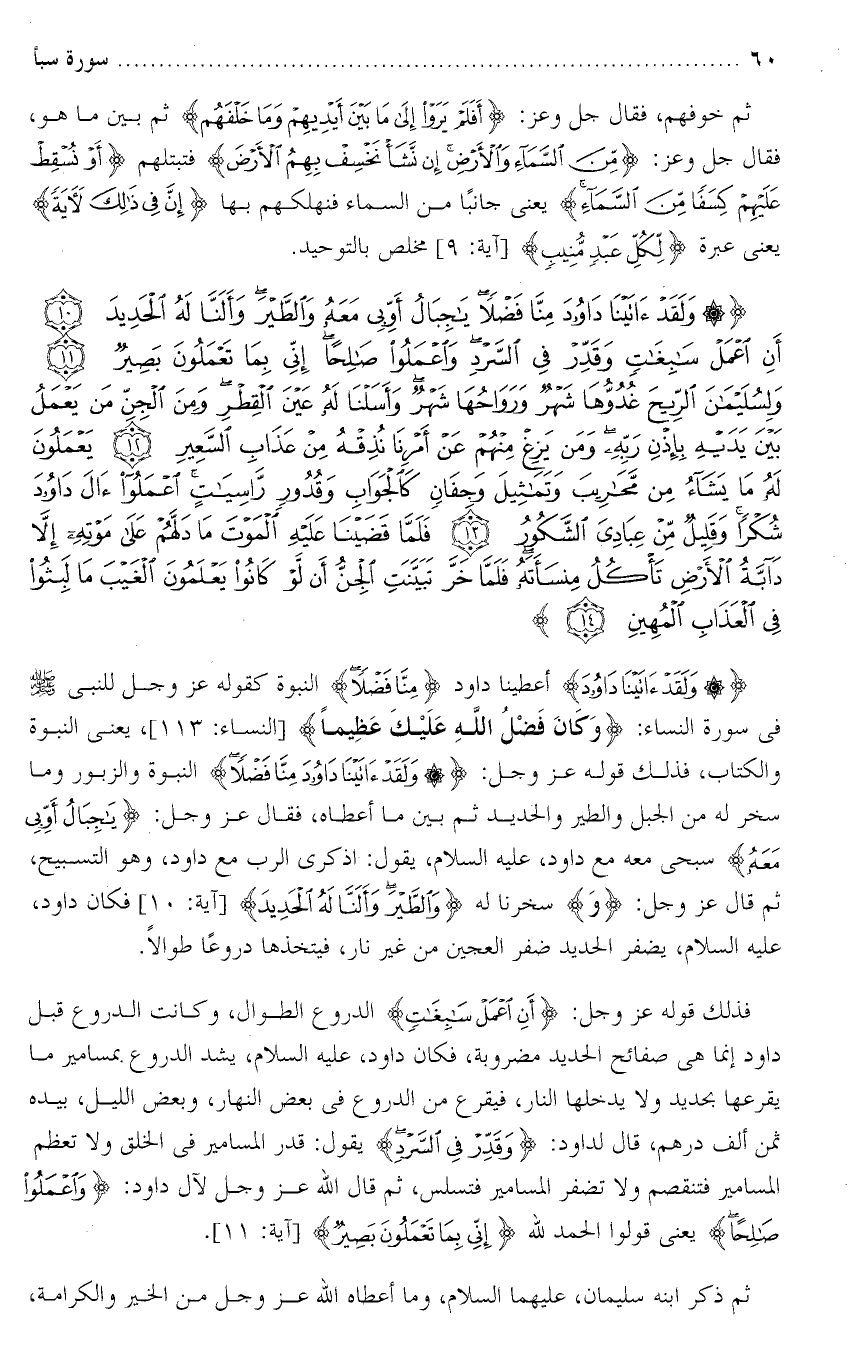 ٦٠ ........................................................................ سورة سبأ
ثم خوفهم، فقال جل وعز: ﴿أَفَلَمْ يَرَوْا۟ إِلَىٰ مَا بَيْنَ أَيْدِيهِمْ وَمَا خَلْفَهُم﴾ ثم بين ما هو،
فقال جل وعز: ﴿مِّنَ ٱلسَّمَآءِ وَٱلْأَرْضِ ۚ إِن نَّشَأْ نَخْسِفْ بِهِمُ ٱلْأَرْضَ﴾ فتبتلهم ﴿أَوْ نُسْقِطْ
عَلَيْهِمْ كِسَفًا مِّنَ ٱلسَّمَآءِ ۚ﴾ يعنى جانبًا من السماء فنهلكهم بها ﴿إِنَّ فِى ذَٰلِكَ لَـَٔايَةً﴾
يعنى عبرة ﴿لِّكُلِّ عَبْدٍ مُّنِيبٍ﴾ [آية: ٩] مخلص بالتوحيد.
﴿۞ وَلَقَدْ ءَاتَيْنَا دَاوُۥدَ مِنَّا فَضْلًا ۖ يَٰجِبَالُ أَوِّبِى مَعَهُۥ وَٱلطَّيْرَ ۖ وَأَلَنَّا لَهُ ٱلْحَدِيدَ ١٠
أَنِ ٱعْمَلْ سَٰبِغَٰتٍ وَقَدِّرْ فِى ٱلسَّرْدِ ۖ وَٱعْمَلُوا۟ صَٰلِحًا ۖ إِنِّى بِمَا تَعْمَلُونَ بَصِيرٌ ١١
وَلِسُلَيْمَٰنَ ٱلرِّيحَ غُدُوُّهَا شَهْرٌ وَرَوَاحُهَا شَهْرٌ ۖ وَأَسَلْنَا لَهُۥ عَيْنَ ٱلْقِطْرِ ۖ وَمِنَ ٱلْجِنِّ مَن يَعْمَلُ
بَيْنَ يَدَيْهِ بِإِذْنِ رَبِّهِۦ ۖ وَمَن يَزِغْ مِنْهُمْ عَنْ أَمْرِنَا نُذِقْهُ مِنْ عَذَابِ ٱلسَّعِيرِ ١٢ يَعْمَلُونَ
لَهُۥ مَا يَشَآءُ مِن مَّحَٰرِيبَ وَتَمَٰثِيلَ وَجِفَانٍ كَٱلْجَوَابِ وَقُدُورٍ رَّاسِيَٰتٍ ۚ ٱعْمَلُوٓا۟ ءَالَ دَاوُۥدَ
شُكْرًا ۚ وَقَلِيلٌ مِّنْ عِبَادِىَ ٱلشَّكُورُ ١٣ فَلَمَّا قَضَيْنَا عَلَيْهِ ٱلْمَوْتَ مَا دَلَّهُمْ عَلَىٰ مَوْتِهِۦٓ إِلَّا
دَآبَّةُ ٱلْأَرْضِ تَأْكُلُ مِنسَأَتَهُۥ ۖ فَلَمَّا خَرَّ تَبَيَّنَتِ ٱلْجِنُّ أَن لَّوْ كَانُوا۟ يَعْلَمُونَ ٱلْغَيْبَ مَا لَبِثُوا۟
فِى ٱلْعَذَابِ ٱلْمُهِينِ ١٤﴾
﴿۞ وَلَقَدْ ءَاتَيْنَا دَاوُۥدَ﴾ أعطينا داود ﴿مِنَّا فَضْلًا ۖ﴾ النبوة كقوله عز وجل للنبى ﷺ
فى سورة النساء: ﴿وَكَانَ فَضْلُ اللَّهِ عَلَيْكَ عَظِيماً﴾ [النساء: ١١٣]، يعنى النبوة
والكتاب، فذلك قوله عز وجل: ﴿۞ وَلَقَدْ ءَاتَيْنَا دَاوُۥدَ مِنَّا فَضْلًا ۖ﴾ النبوة والزبور وما
سخر له من الجبل والطير والحديد ثم بين ما أعطاه، فقال عز وجل: ﴿يَٰجِبَالُ أَوِّبِى
مَعَهُۥ﴾ سبحى معه مع داود، عليه السلام، يقول: اذكرى الرب مع داود، وهو التسبيح،
ثم قال عز وجل: ﴿وَ﴾ سخرنا له ﴿وَٱلطَّيْرَ ۖ وَأَلَنَّا لَهُ ٱلْحَدِيدَ﴾ [آية: ١٠] فكان داود،
عليه السلام، يضفر الحديد ضفر العجين من غير نار، فيتخذها دروعًا طوالاً.
فذلك قوله عز وجل: ﴿أَنِ ٱعْمَلْ سَٰبِغَٰتٍ﴾ الدروع الطوال، وكانت الدروع قبل
داود إنما هى صفائح الحديد مضروبة، فكان داود، عليه السلام، يشد الدروع بمسامير ما
يقرعها بحديد ولا يدخلها النار، فيقرع من الدروع فى بعض النهار، وبعض الليل، بيده
ثمن ألف درهم، قال لداود: ﴿وَقَدِّرْ فِى ٱلسَّرْدِ ۖ﴾ يقول: قدر المسامير فى الخلق ولا تعظم
المسامير فتنقصم ولا تضفر المسامير فتسلس، ثم قال الله عز وجل لآل داود: ﴿وَٱعْمَلُوا۟
صَٰلِحًا ۖ﴾ يعنى قولوا الحمد لله ﴿إِنِّى بِمَا تَعْمَلُونَ بَصِيرٌ﴾ [آية: ١١].
ثم ذكر ابنه سليمان، عليهما السلام، وما أعطاه الله عز وجل من الخير والكرامة،